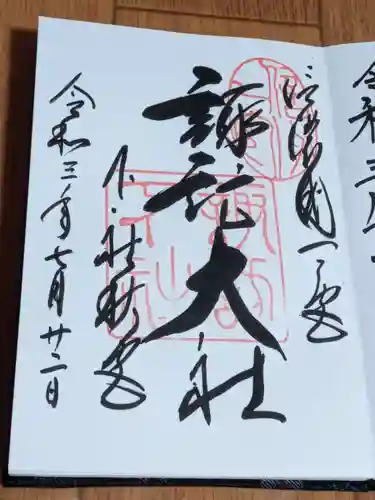 信濃國一之宮
諏訪大社
下社秋宮
令和三年七月廿二日
令和三年